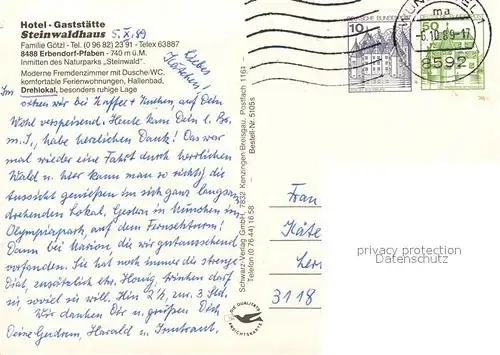 Hotel - Gaststätte
Steinwaldhaus
Familie Götzl - Tel. (0 96 82) 23 91 - Telex 63887
8488 Erbendorf-Pfaben - 740 m ü.M.
Inmitten des Naturparks „Steinwald“.
Moderne Fremdenzimmer mit Dusche/WC,
komfortable Ferienwohnungen, Hallenbad,
Drehlokal, besonders ruhige Lage
5.X.89
Liebes
Kätchen!
Im
sitzen wir bei Kaffee + Kuchen auf Dein
Wohl verspeisend. Heute kam Dein l. Br.
m. I., habe herzlichen Dank! Das war
mal wieder eine Fahrt durch herrlichen
Wald u. hier kann man so richtig die
Aussicht genießen im sich ganz langsam
drehenden Lokal. Gestern in München im
Olympiapark, auf dem Fernsehturm!
Dann bei Marion die wir gutaussehend
vorfanden. Sie hat noch immer die strenge
Diät, zusätzlich etw. Honig, trinken darf
sie, soviel sie will. Hin 2½, zur. 3 Std.
Wir danken Dir u. grüßen Dich
Deine Gudrun, Harald u. Irmtraut.
Schwarz-Verlag GmbH, 7832 Kenzingen-Breisgau, Postfach 1163 - Bestell-Nr. 5105s
Telefon (0 76 44) 16 58
DIE QUALITÄTS
ANSICHTSKARTE
10
DEUTSCHE BUNDESPOST
50
-6.10.89-17
8592
Frau
Käte
Herr
3118
privacy protection
Datenschutz